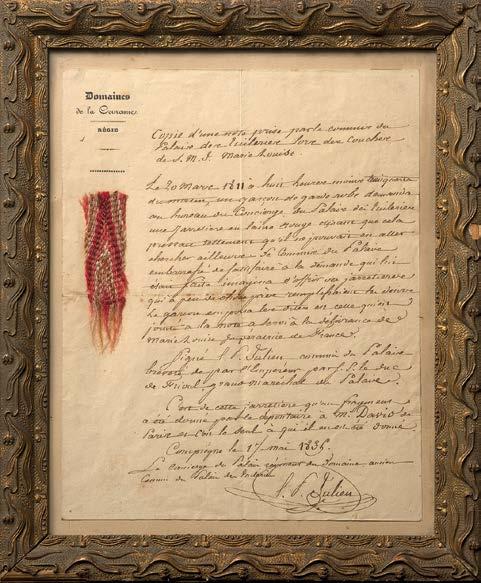 Domaines
de la Couronne
RÉGIE
Copie d'une note prise par le commis du
Palais des Tuileries lors des Couches
de S. M. I. Marie Louise.
Le 20 Mars 1811 à huit heures moins
du matin, un garçon de garde robe
au bureau du Concierge du Palais des Tuileries
une jarretière en laine rouge disant que cela
pressait tellement qu'il ne pouvait en aller
chercher ailleurs. Le Commis du Palais
embarrassé de satisfaire à la demande qui lui
était faite imagina d'offrir sa jarretière
qui à peu de chose près remplissait le
Le garçon emporta
jointe à la note a servi à la délivrance de
Marie Louise Impératrice de France.
Signé S. P. Julien commis du Palais
breveté par l'Empereur par le duc
de Frioul, grand maréchal du Palais.
C'est de cette jarretière qu'un fragment
a été donné par le dépositaire à Mr David de
Paris et c'est le seul à qui il en ait été donné
Compiègne le 17 mai 1836.
Le Concierge du Palais du Domaine ancien
Commis du Palais des
S. P. Julien